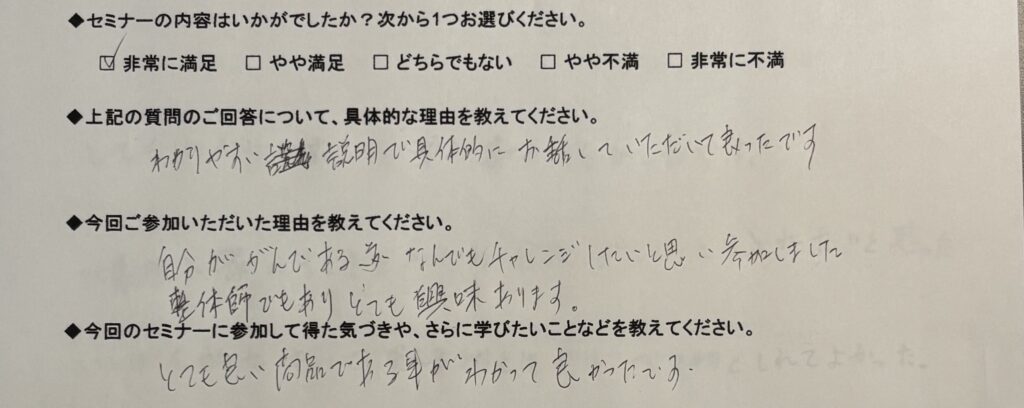 ◆セミナーの内容はいかがでしたか?次から1つお選びください。
☑ 非常に満足 □ やや満足 □ どちらでもない □ やや不満 □ 非常に不満
◆上記の質問のご回答について、具体的な理由を教えてください。
わかりやすい 説明で具体的に お話していただいて良ったです
◆今回ご参加いただいた理由を教えてください。
自分ががんである事 なんでもチャレンジしたいと思い参加しました
整体師でもあり とても興味あります。
◆今回のセミナーに参加して得た気づきや、さらに学びたいことなどを教えてください。
とても良い商品である事がわかって良かったです.